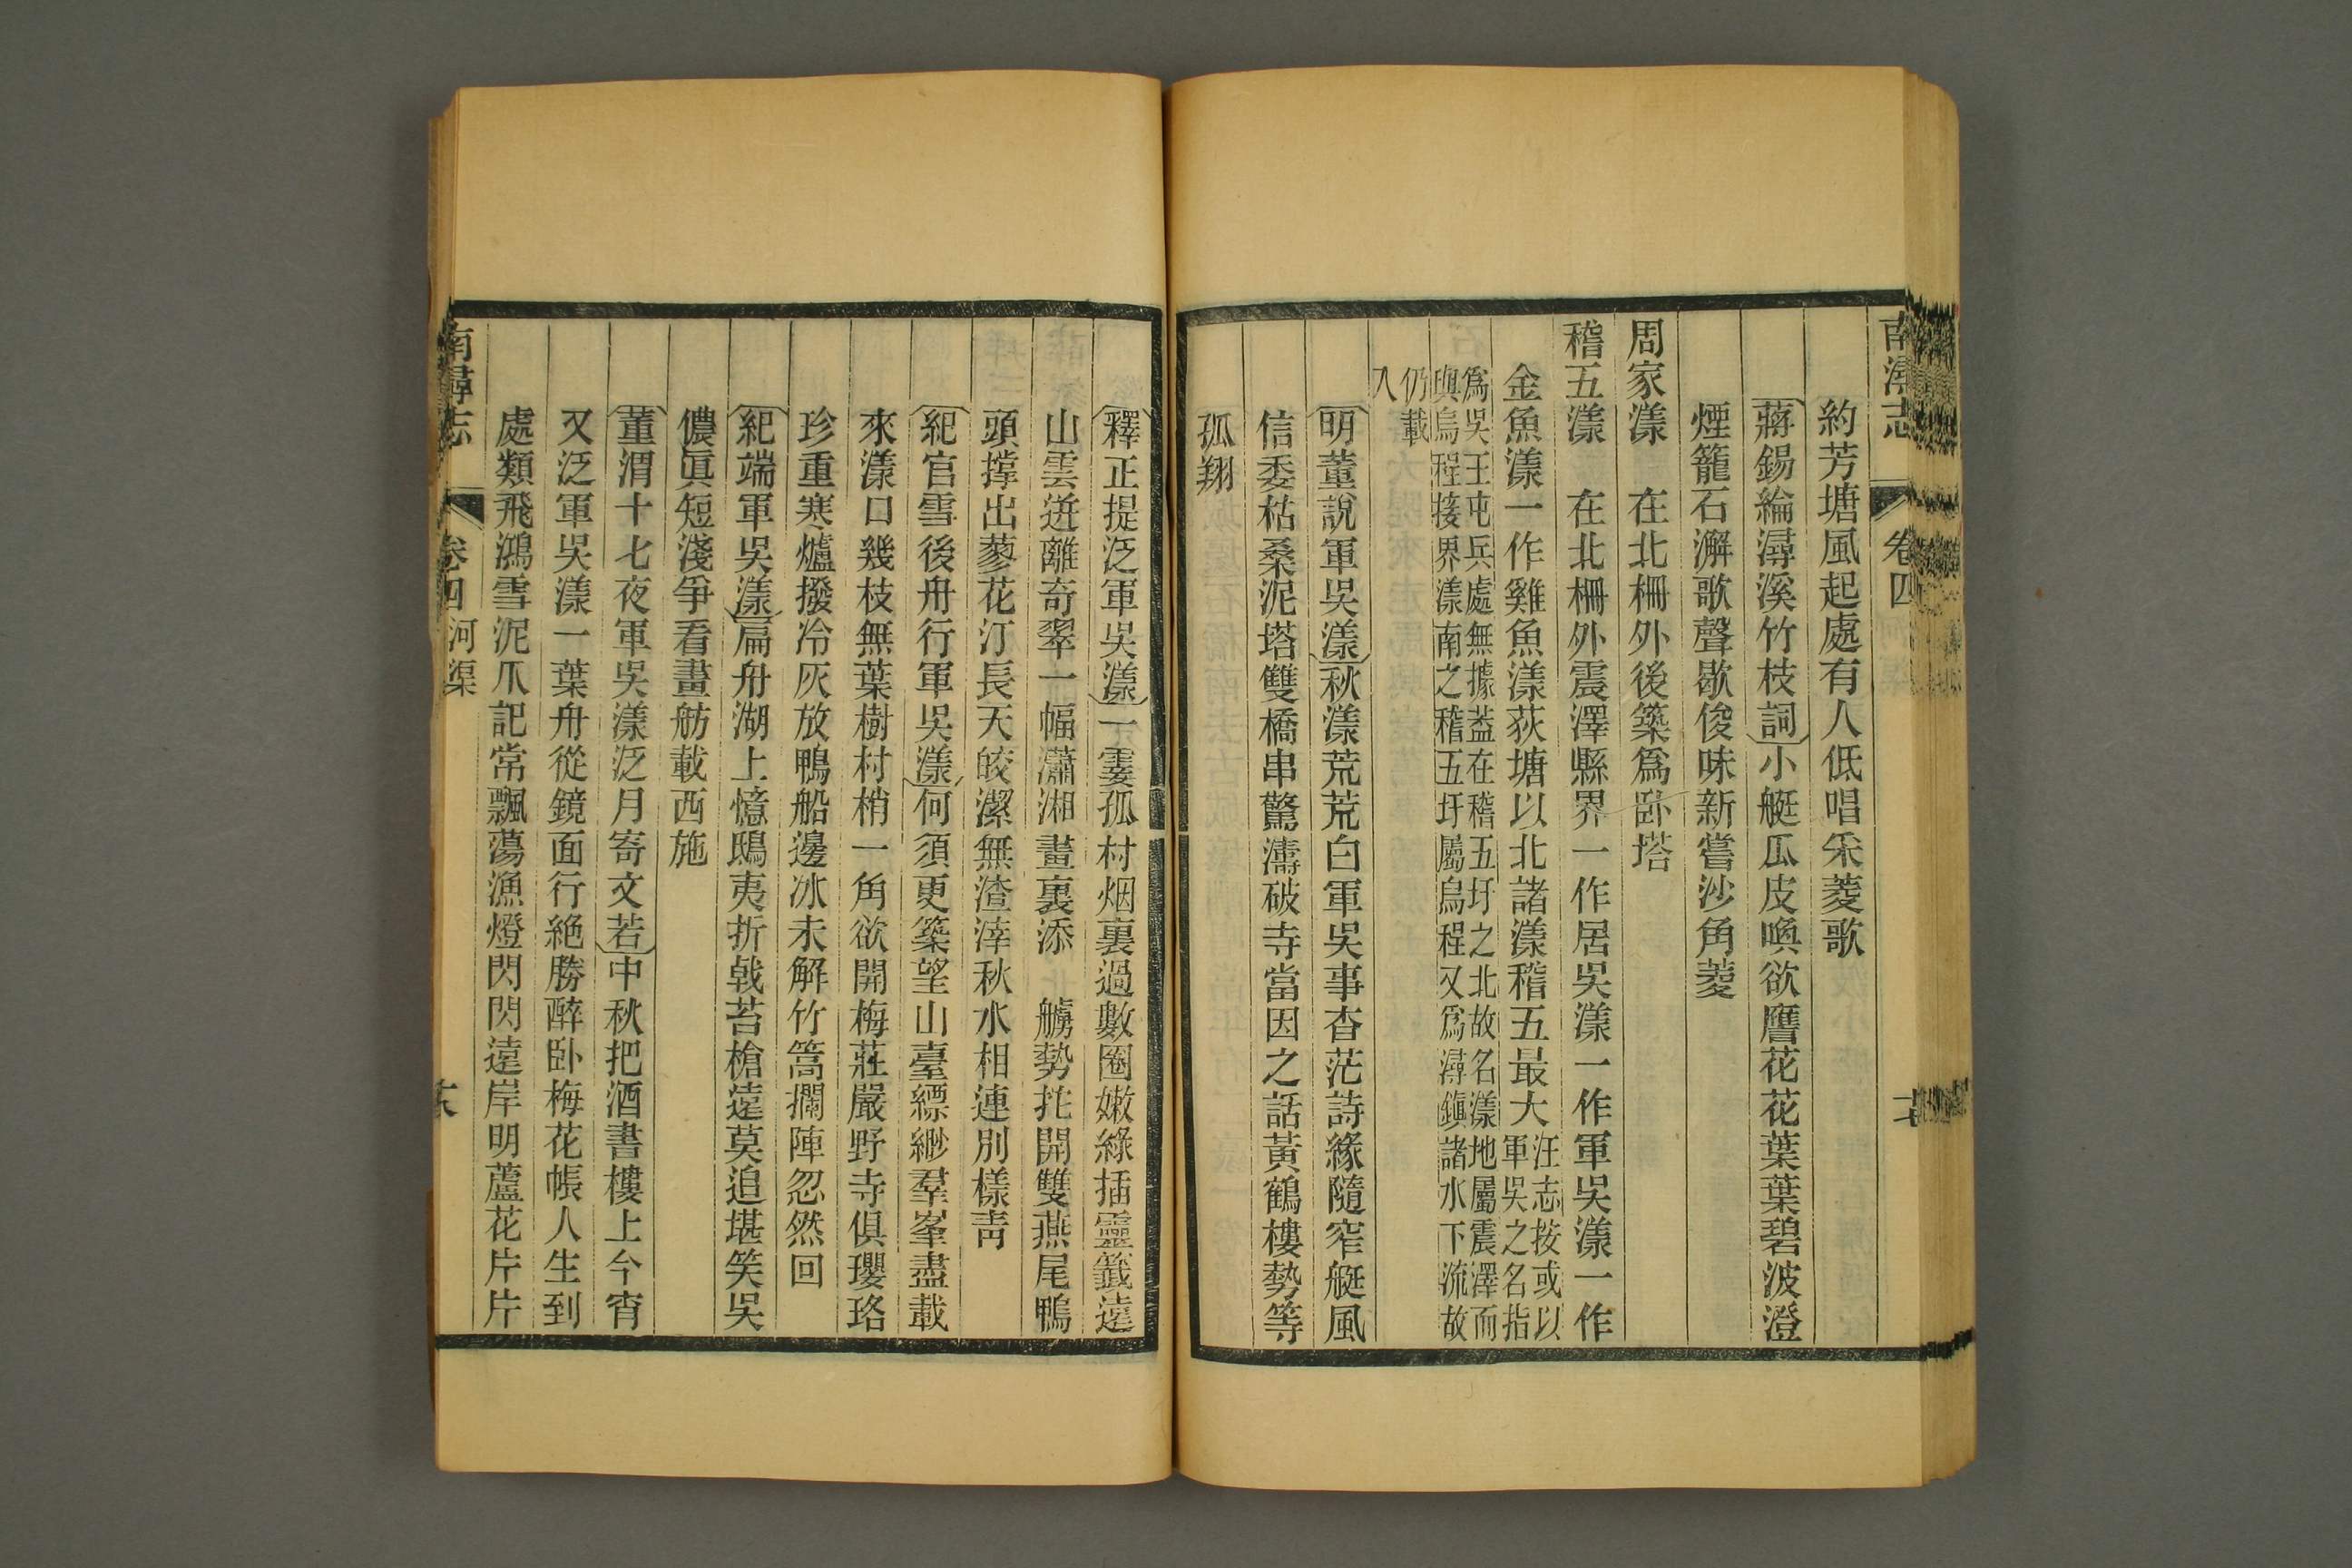 南潯志 卷四
約芳塘風起處有人低唱采菱歌
蔣錫綸潯溪竹枝詞小艇瓜皮喚欲譍花花葉葉碧波澄
煙籠石澥歌聲歇俊味新嘗沙角菱
周家漾 在北柵外後築爲卧塔
稽五漾 在北柵外震澤縣界一作居吳漾一作軍吳漾一作
金魚漾一作雞魚漾荻塘以北諸漾稽五最大汪志按或以
軍吳之名指
爲吳王屯兵處無據葢在稽五圩之北故名漾地屬震澤而
與烏程接界漾南之稽五圩屬烏程又爲潯鎭諸水下流故
仍載
入
明董說軍吳漾秋漾荒荒白軍吳事杳茫詩緣隨窄艇風
信委枯桑泥塔雙橋串驚濤破寺當因之話黃鶴樓勢等
孤翔
釋正提泛軍吳漾一霎孤村烟裏過數圈嫩綠插靈籤遠
山雲迸離奇翠一幅瀟湘畫裏添 艣勢扡開雙燕尾鴨
頭撑出蓼花汀長天皎潔無渣滓秋水相連別樣靑
紀官雪後舟行軍吳漾何須更築望山臺縹緲羣峯盡載
來漾口幾枝無葉樹村梢一角欲開梅莊嚴野寺俱瓔珞
珍重寒爐撥冷灰放鴨船邊冰未解竹篙攔陣忽然回
紀端軍吳漾扁舟湖上憶鴟夷折戟苔槍遠莫追堪笑吳
儂眞短淺爭看畫舫載西施
董渭十七夜軍吳漾泛月寄文若中秋把酒書樓上今宵
又泛軍吳漾一葉舟從鏡面行絶勝醉卧梅花帳人生到
處類飛鴻雪泥爪記常飄蕩漁燈閃閃遠岸明蘆花片片
南潯志 卷四 河渠